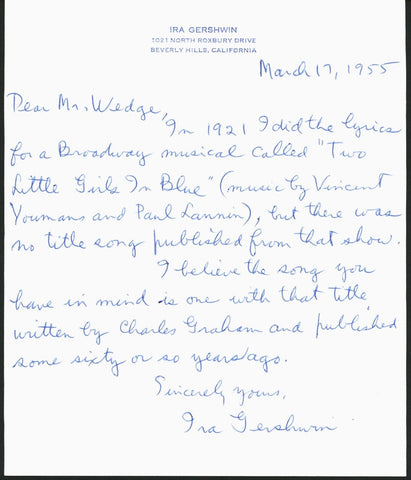 IRA GERSHWIN
1021 NORTH ROXBURY DRIVE
BEVERLY HILLS, CALIFORNIA
March 17, 1955
Dear Mr. Wedge,
In 1921 I did the lyrics
for a Broadway musical called "Two
Little Girls In Blue" (music by Vincent
Youmans and Paul Lannin), but there was
no title song published from that show.
I believe the song you
have in mind is one with that title
written by Charles Graham and published
some sixty or so years ago.
Sincerely yours,
Ira Gershwin